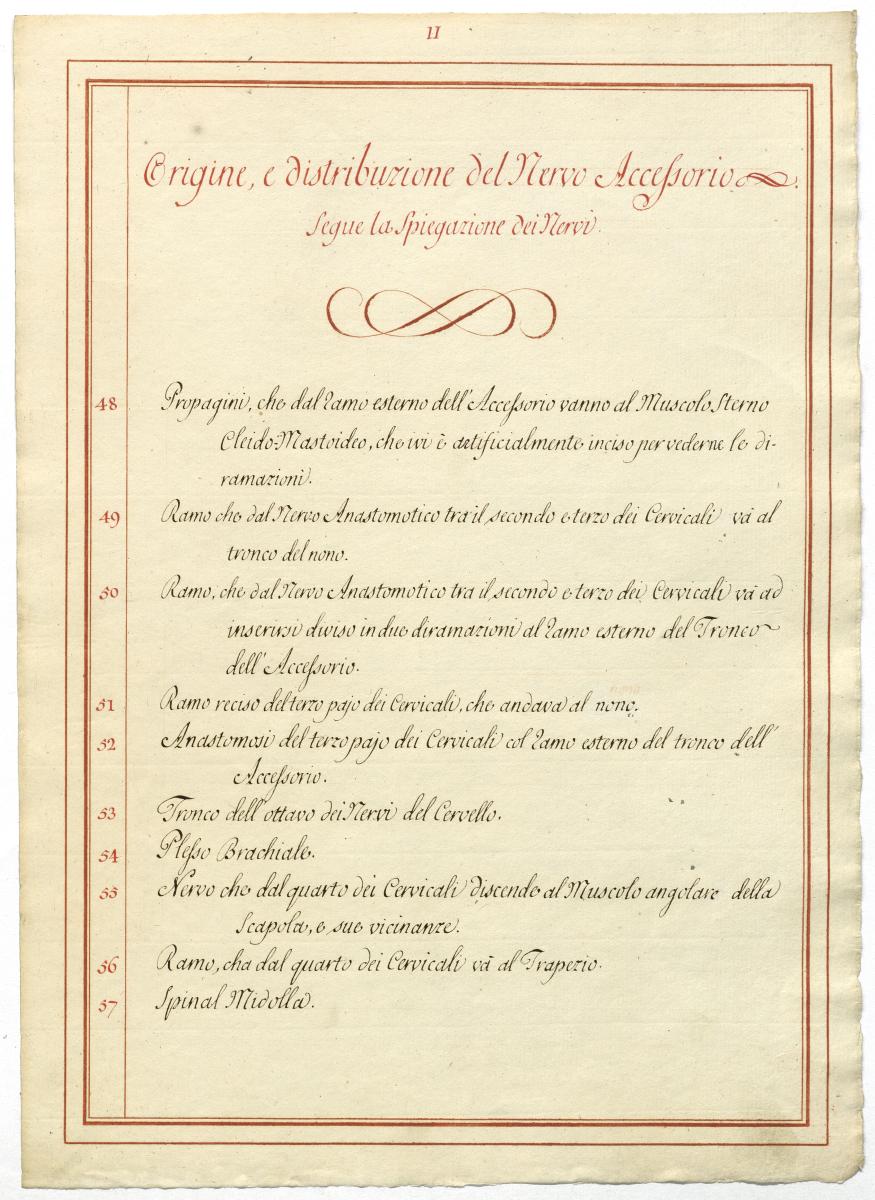 11
Origine, e distribuzione del Nervo Accessorio.
Segue la Spiegazione dei Nervi.
48 Propagini, che dal ramo esterno dell'Accessorio vanno al Muscolo Sterno
Cleido-Mastoideo, che ivi è artificialmente inciso per vederne le di-
ramazioni.
49 Ramo che dal Nervo Anastomotico tra il secondo e terzo dei Cervicali và al
tronco del nono.
50 Ramo, che dal Nervo Anastomotico tra il secondo e terzo dei Cervicali và ad
inserirsi diviso in due diramazioni al ramo esterno del Tronco
dell'Accessorio.
51 Ramo reciso del terzo pajo dei Cervicali, che andava al nono.
52 Anastomosi del terzo pajo dei Cervicali col ramo esterno del tronco dell'
Accessorio.
53 Tronco dell'ottavo dei Nervi del Cervello.
54 Plesso Brachiale.
55 Nervo che dal quarto dei Cervicali discende al Muscolo angolare della
Scapola, e sue vicinanze.
56 Ramo, cha dal quarto dei Cervicali và al Trapezio.
57 Spinal Midolla.